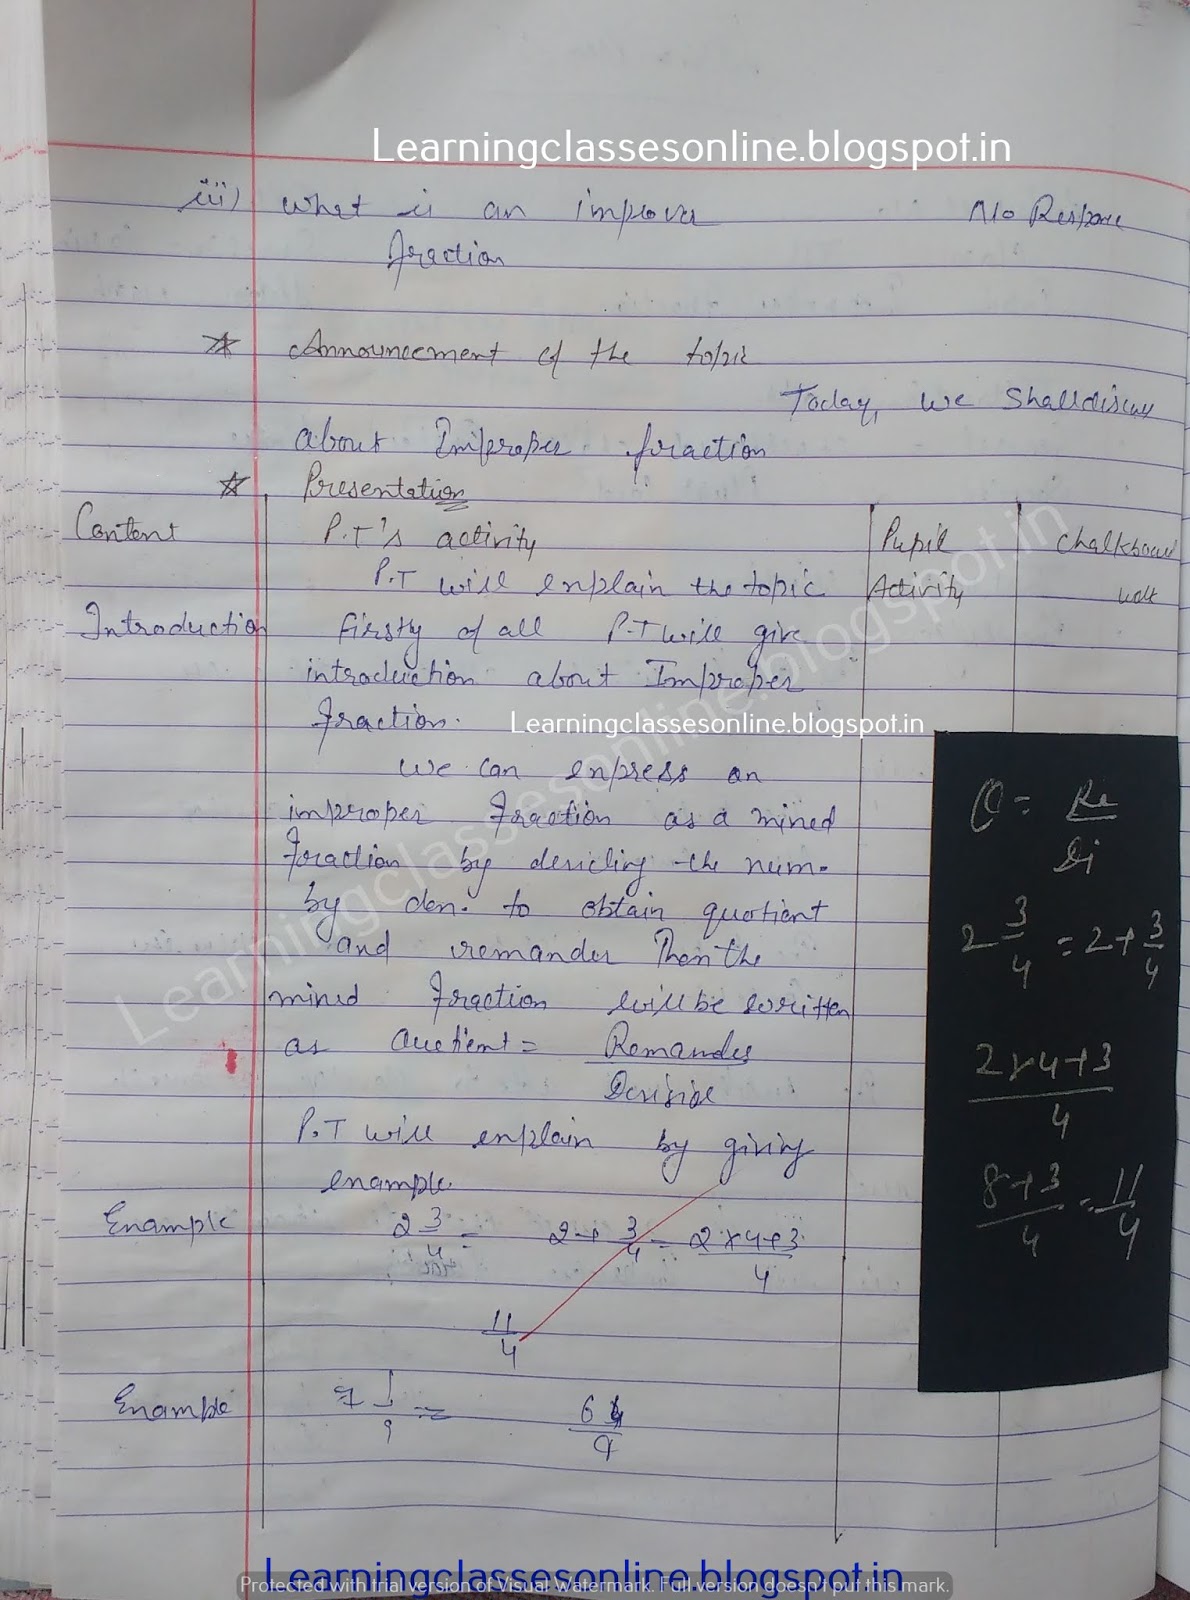 Learningclassesonline.blogspot.in
iii) What is an improver No Response
fraction
Announcement of the topic
Today, we shall discuss
about Improper fraction
Presentation
Content P.T's activity Pupil Chalkboard
P.T will explain the topic Activity work
Introduction Firstly of all P.T will give
introduction about Improper
fraction.
Learningclassesonline.blogspot.in
We can express an
improper fraction as a mixed
fraction by deviding the num.
by den. to obtain quotient
and remander Then the
mixed fraction will be written
as Quetient = Remander
Devisior
P.T will explain by giving
example.
Example 2 3/4 = 2 + 3/4 = 2×4+3/4
11/4
Example 7 1/9 = 64/9
Q = Re/Di
2 3/4 = 2 + 3/4
2×4+3/4
8+3/4 = 11/4
Learningclassesonline.blogspot.in
Learningclassesonline.blogspot.in
Protected with trial version of Visual Watermark. Full version doesn't put this mark.